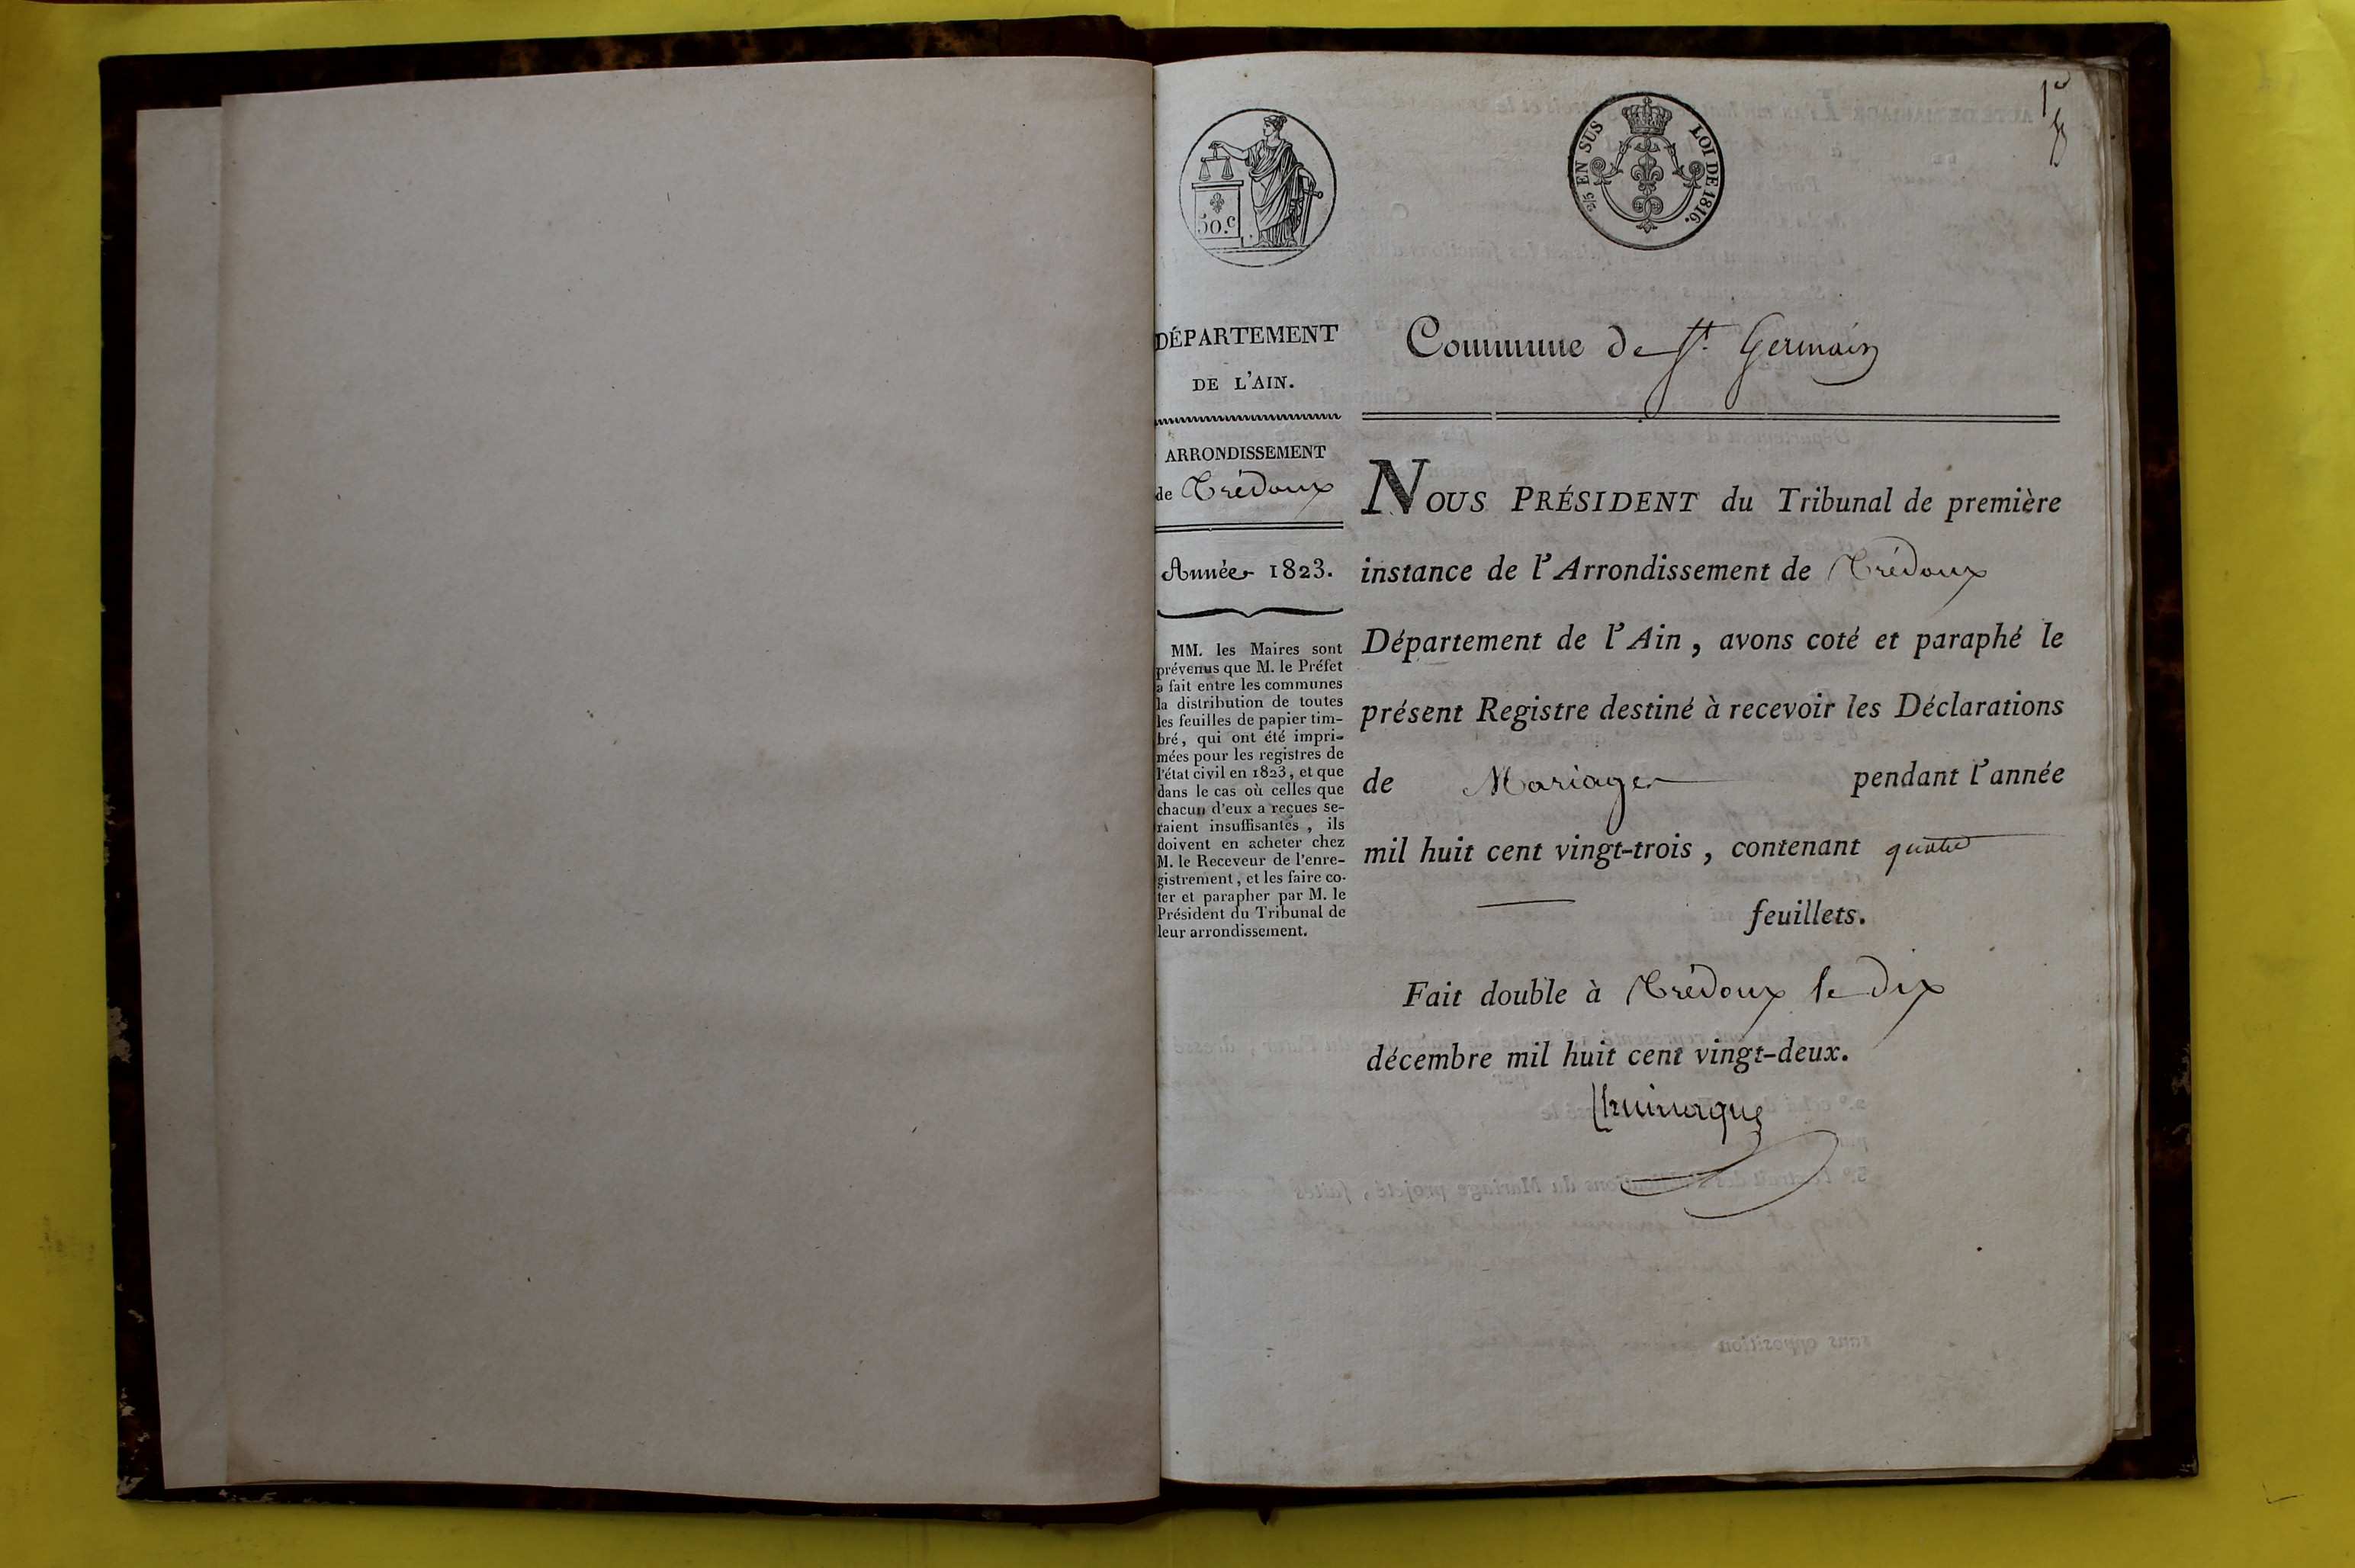 1.er
50.c
2/5 EN SUS
LOI DE 1816.
DÉPARTEMENT
DE L'AIN.
ARRONDISSEMENT
de Trévoux
Année 1823.
MM. les Maires sont
prévenus que M. le Préfet
a fait entre les communes
la distribution de toutes
les feuilles de papier tim-
bré, qui ont été impri-
mées pour les registres de
l'état civil en 1823, et que
dans le cas où celles que
chacun d'eux a reçues se-
raient insuffisantes, ils
doivent en acheter chez
M. le Receveur de l'enre-
gistrement, et les faire co-
ter et parapher par M. le
Président du Tribunal de
leur arrondissement.
Commune de St. Germain
NOUS PRÉSIDENT du Tribunal de première
instance de l'Arrondissement de Trévoux
Département de l'Ain, avons coté et paraphé le
présent Registre destiné à recevoir les Déclarations
de Mariage pendant l'année
mil huit cent vingt-trois, contenant quatre
feuillets.
Fait double à Trévoux le dix
décembre mil huit cent vingt-deux.